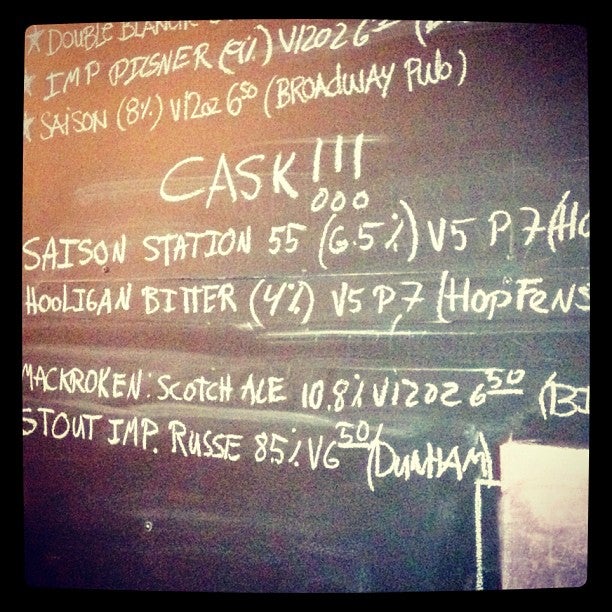 ★ DOUBLE BLANCHE
★ IMP PILSNER (9%) V12oz 6
★ SAISON (8%) V12oz 6⁵⁰ (BROADWAY PUB)
CASK!!!
SAISON STATION 55 (6.5%) V5 P 7 (HO
HOOLIGAN BITTER (4%) V5 P,7 (HOPFENS
MACKROKEN: SCOTCH ALE 10,8% V12oz 6⁵⁰ (BI
STOUT IMP. RUSSE 85% V6⁵⁰ (DUNHAM)